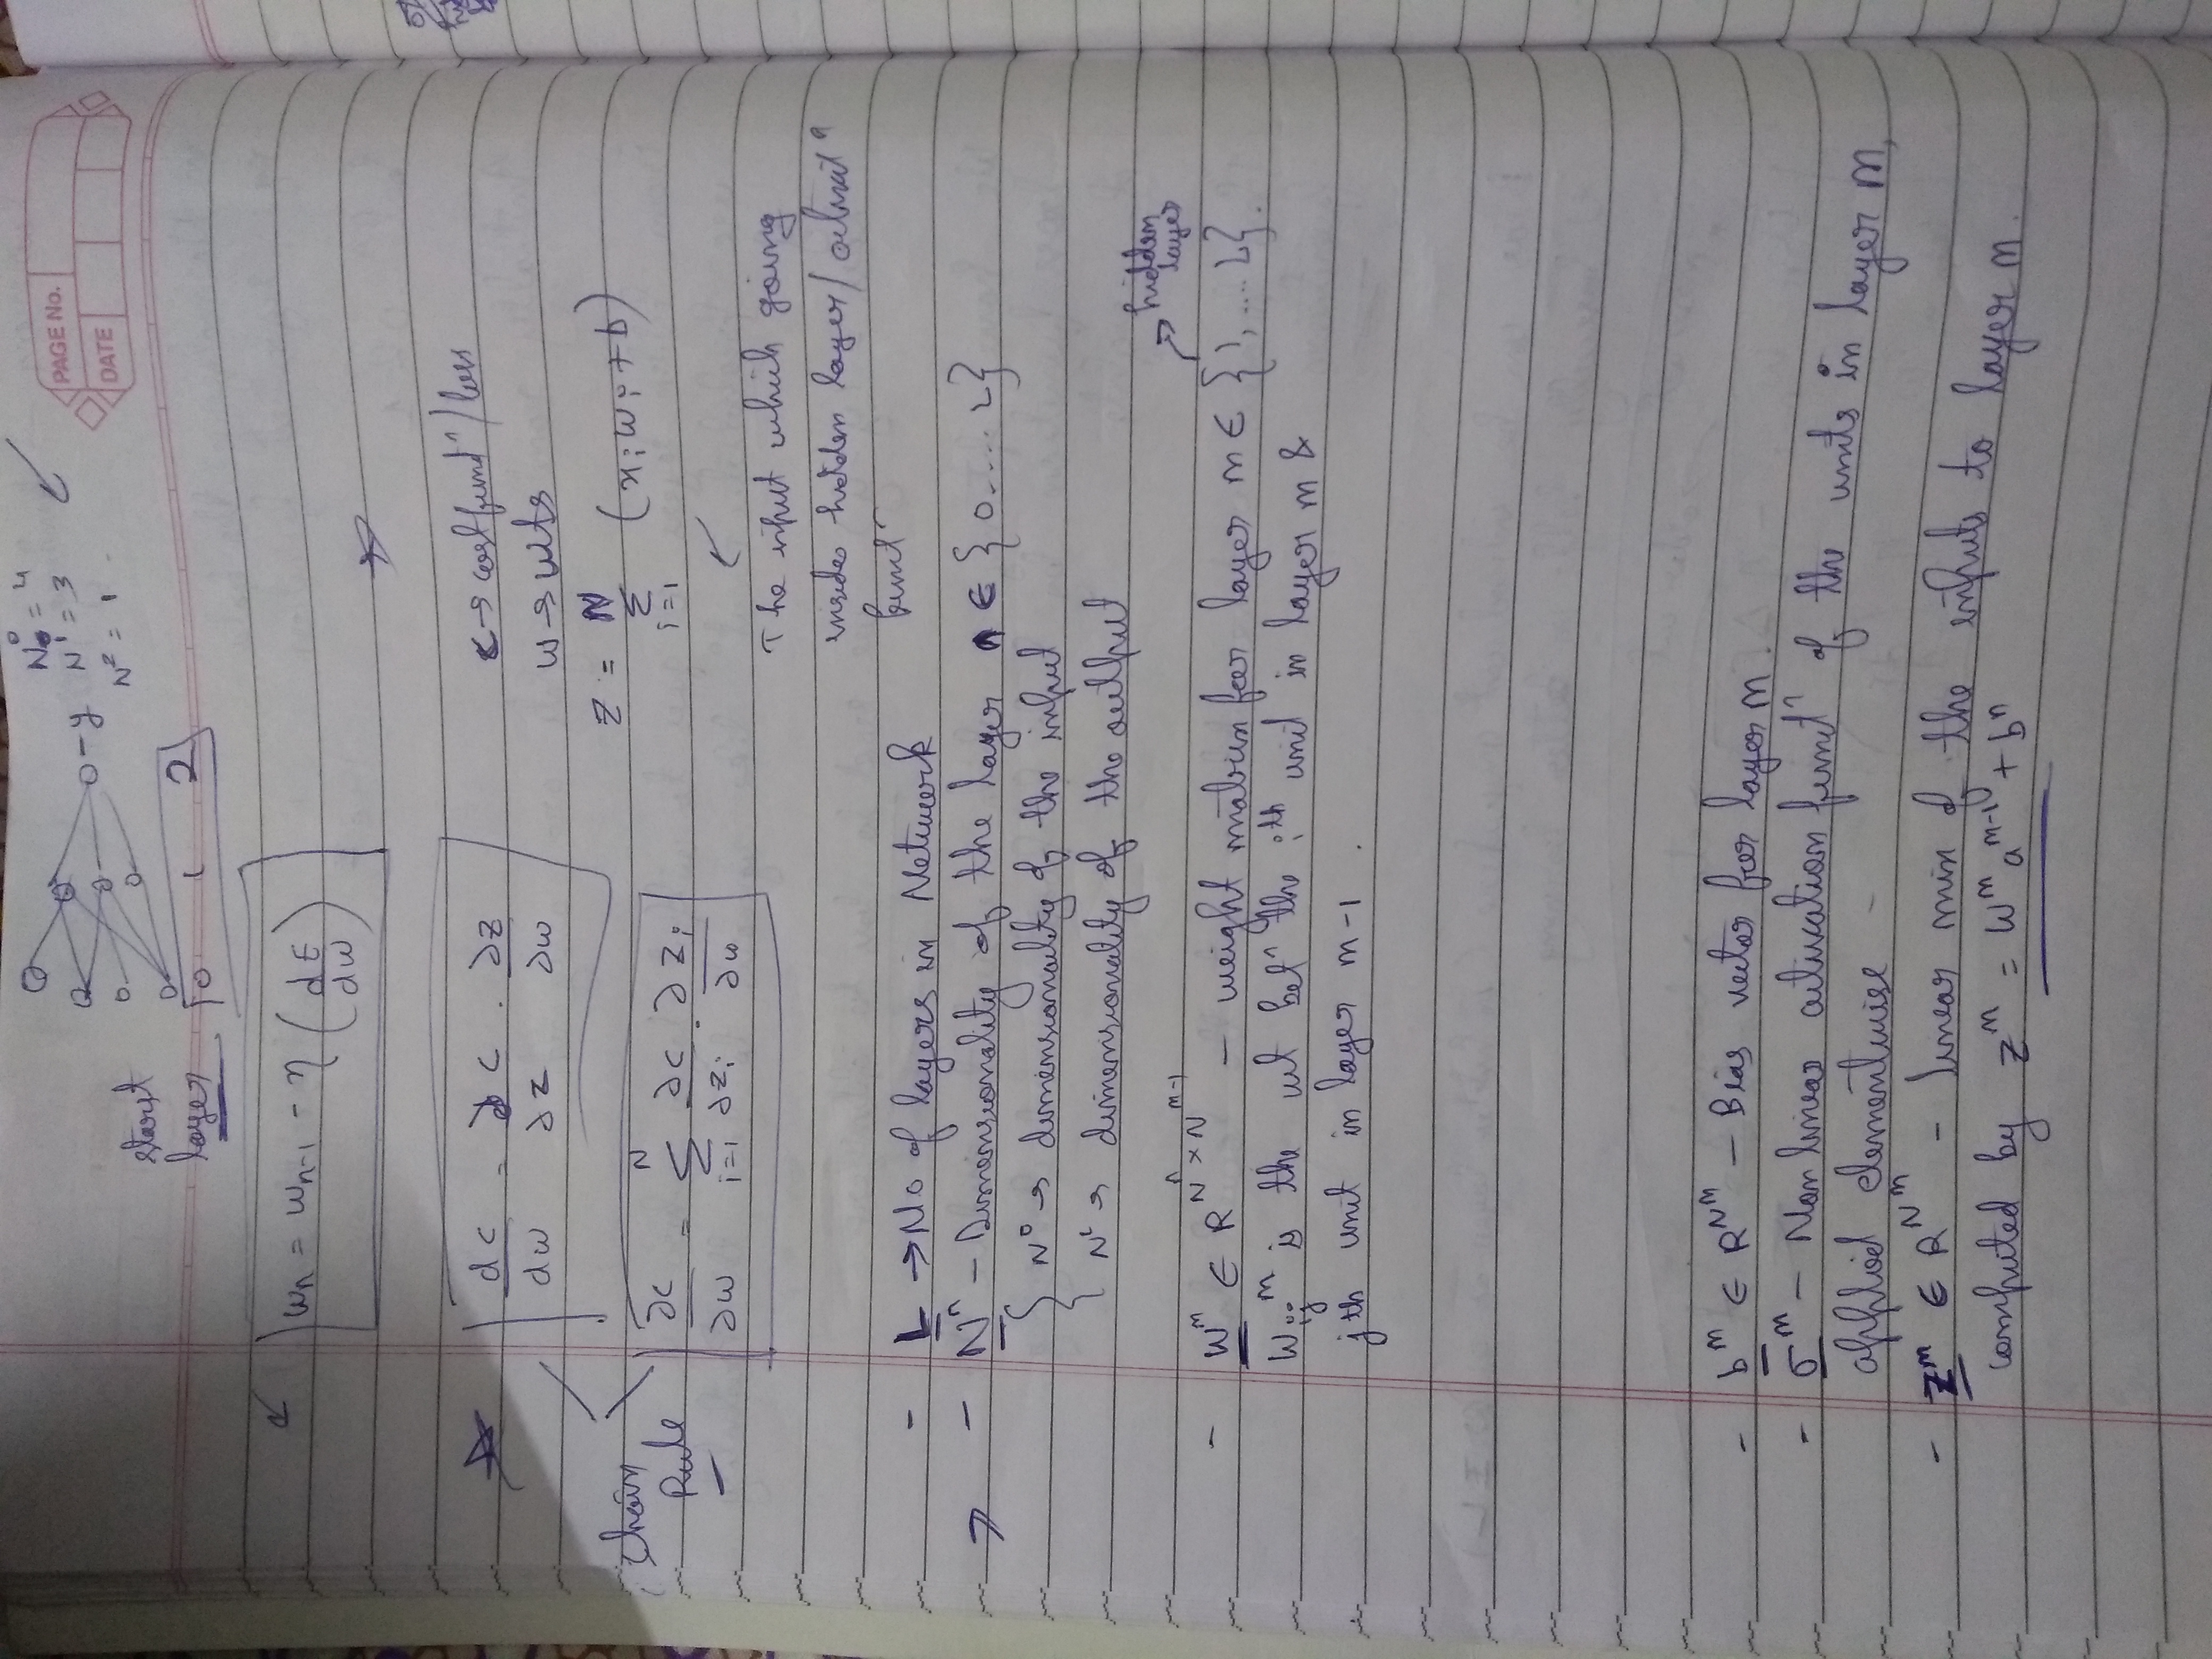 PAGE No.
DATE
0 - y
N⁰ = 4
N¹ = 3
N² = 1
start
layer
0 1 2
wn = wn-1 - η (dE/dw)
dc/dw = ∂c/∂z . ∂z/∂w
c → cost funcⁿ / loss
w → wts
Chain
Rule
∂c/∂w = N Σ i=1 ∂c/∂zi . ∂zi/∂w
z = N Σ i=1 (xi wi + b)
The input which going
inside hidden layer / activatⁿ
funcⁿ
- L → No of layers in Network
→ - Nⁿ - Dimensionality of the layer n ∈ {0....L}
{ N⁰ → dimensionality of the input
{ Nᴸ → dimensionality of the output
hidden
layer
- Wᵐ ∈ R^Nᵐ×Nᵐ⁻¹ - weight matrix for layer m ∈ {1,....L}.
Wijᵐ is the wt betⁿ the iᵗʰ unit in layer m &
jth unit in layer m-1.
- bᵐ ∈ R^Nᵐ - Bias vector for layer m.
- σᵐ - Non linear activation funcⁿ of the units in layer m,
applied elementwise
- zᵐ ∈ R^Nᵐ - linear min of the inputs to layer m.
computed by zᵐ = Wᵐ aᵐ⁻¹ + bⁿ